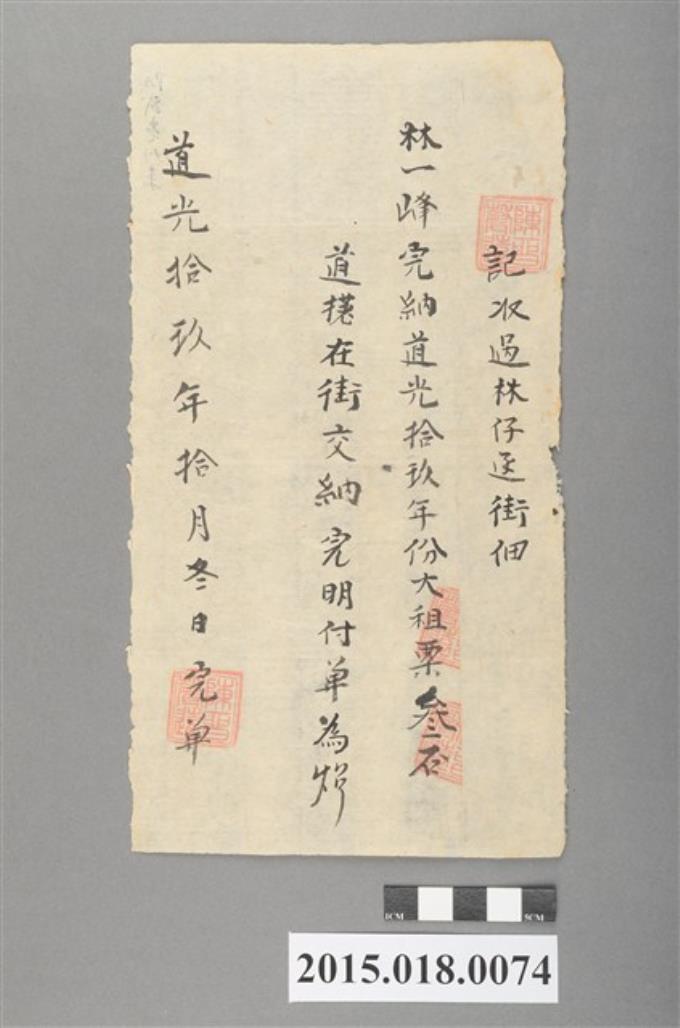 記收過林仔辺街佃
林一峰完納道光拾玖年份大租粟叁石
道樣在街交納完明付单為炤
道光拾玖年拾月冬日完单
1CM
5CM
2015.018.0074